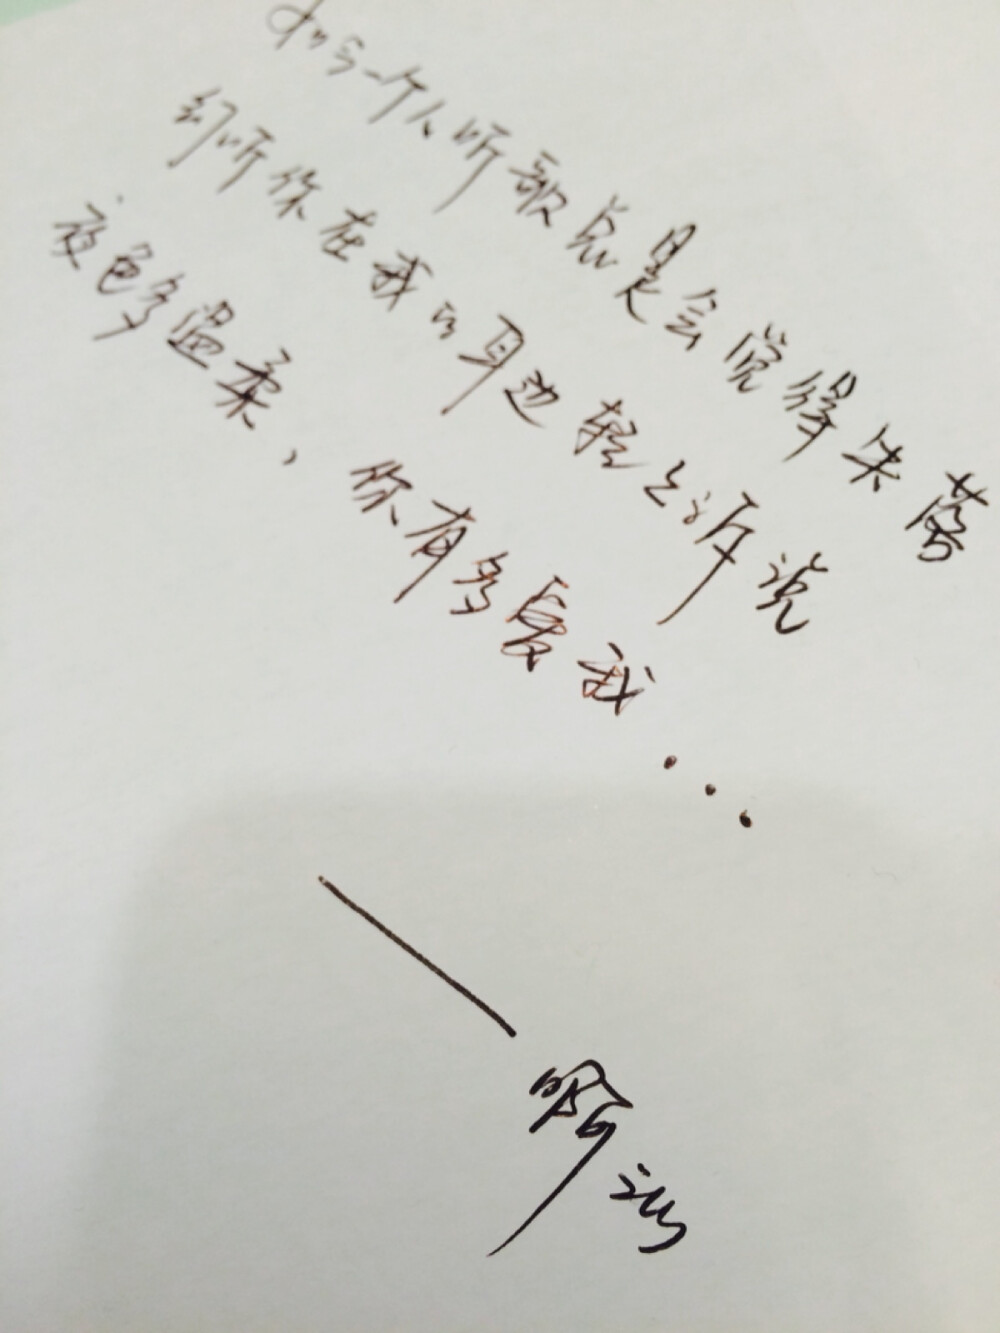 如今一个人听歌总是会觉得失落
幻听你在我的耳边轻轻诉说
夜色多温柔，你有多爱我...
——啊